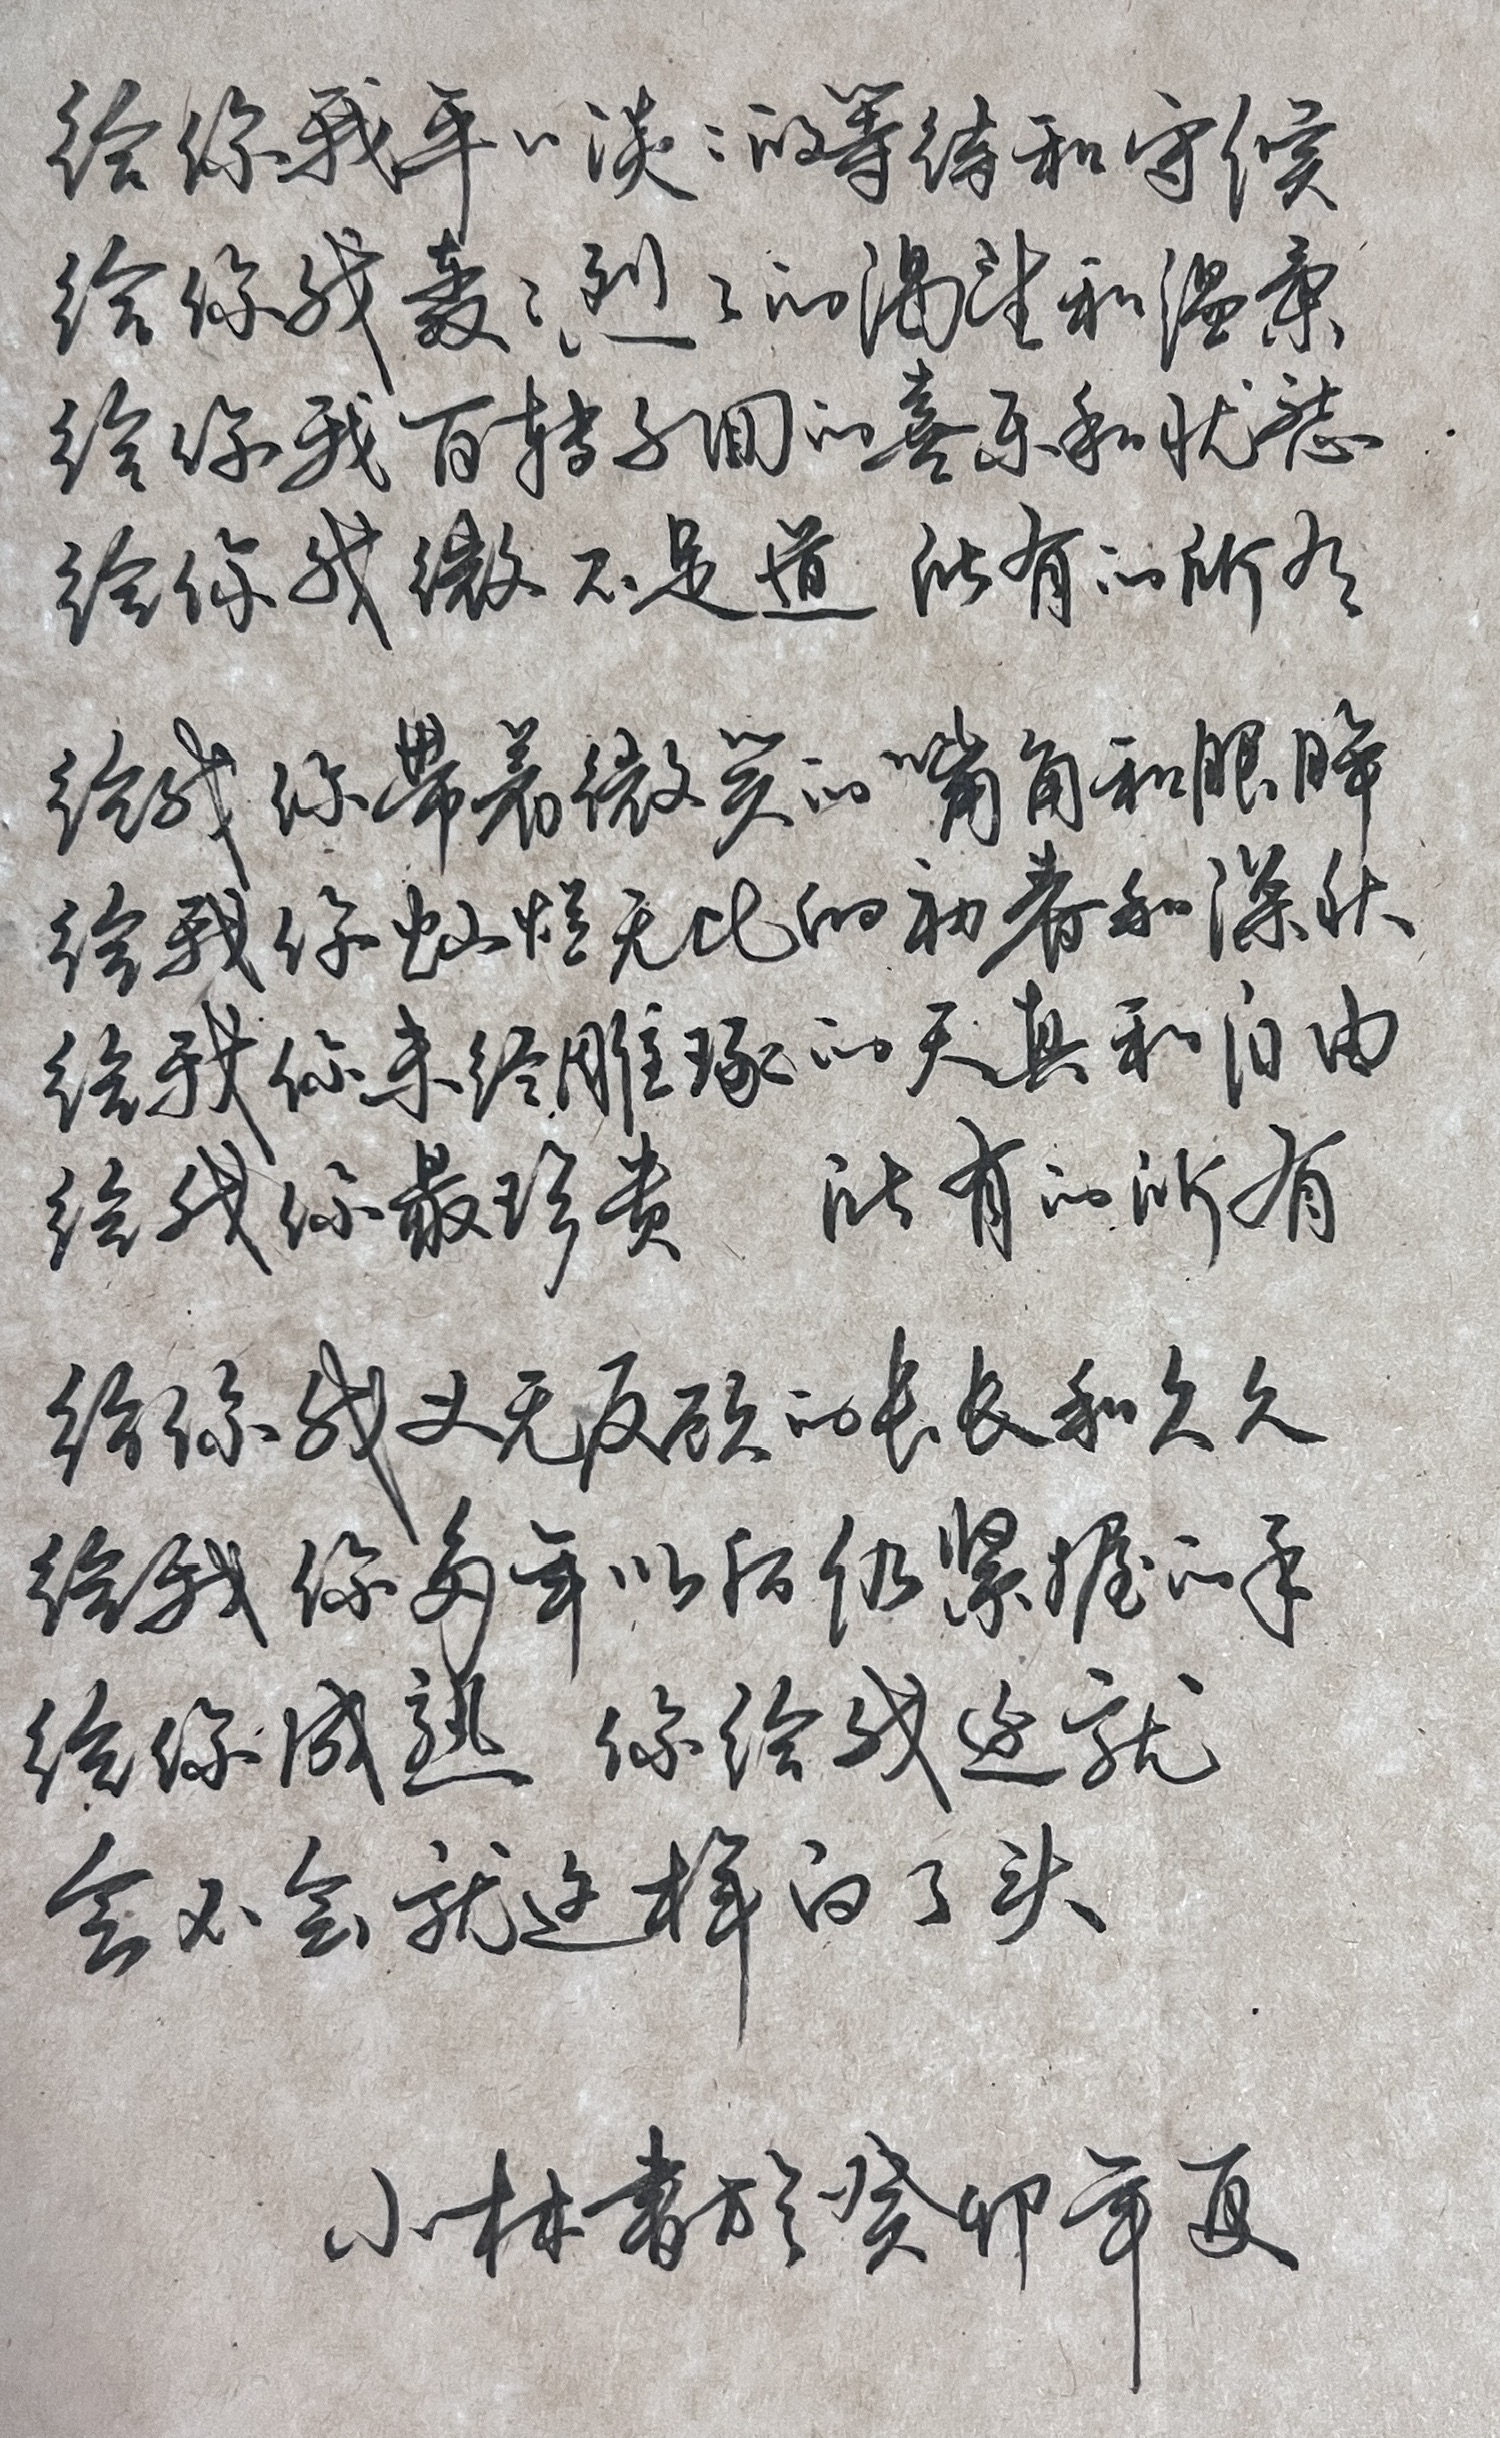 给你我平平淡淡的等待和守候
给你我轰轰烈烈的渴望和温柔
给你我百转千回的喜乐和忧愁
给你我微不足道 所有的所有
给我你带着微笑的嘴角和眼眸
给我你灿烂无比的初春和深秋
给我你未经雕琢的天真和自由
给我你最珍贵 所有的所有
给你我义无反顾的长长和久久
给我你多年以后仍紧握的手
给你成熟 你给我迁就
会不会就这样白了头
小林书於癸卯年夏